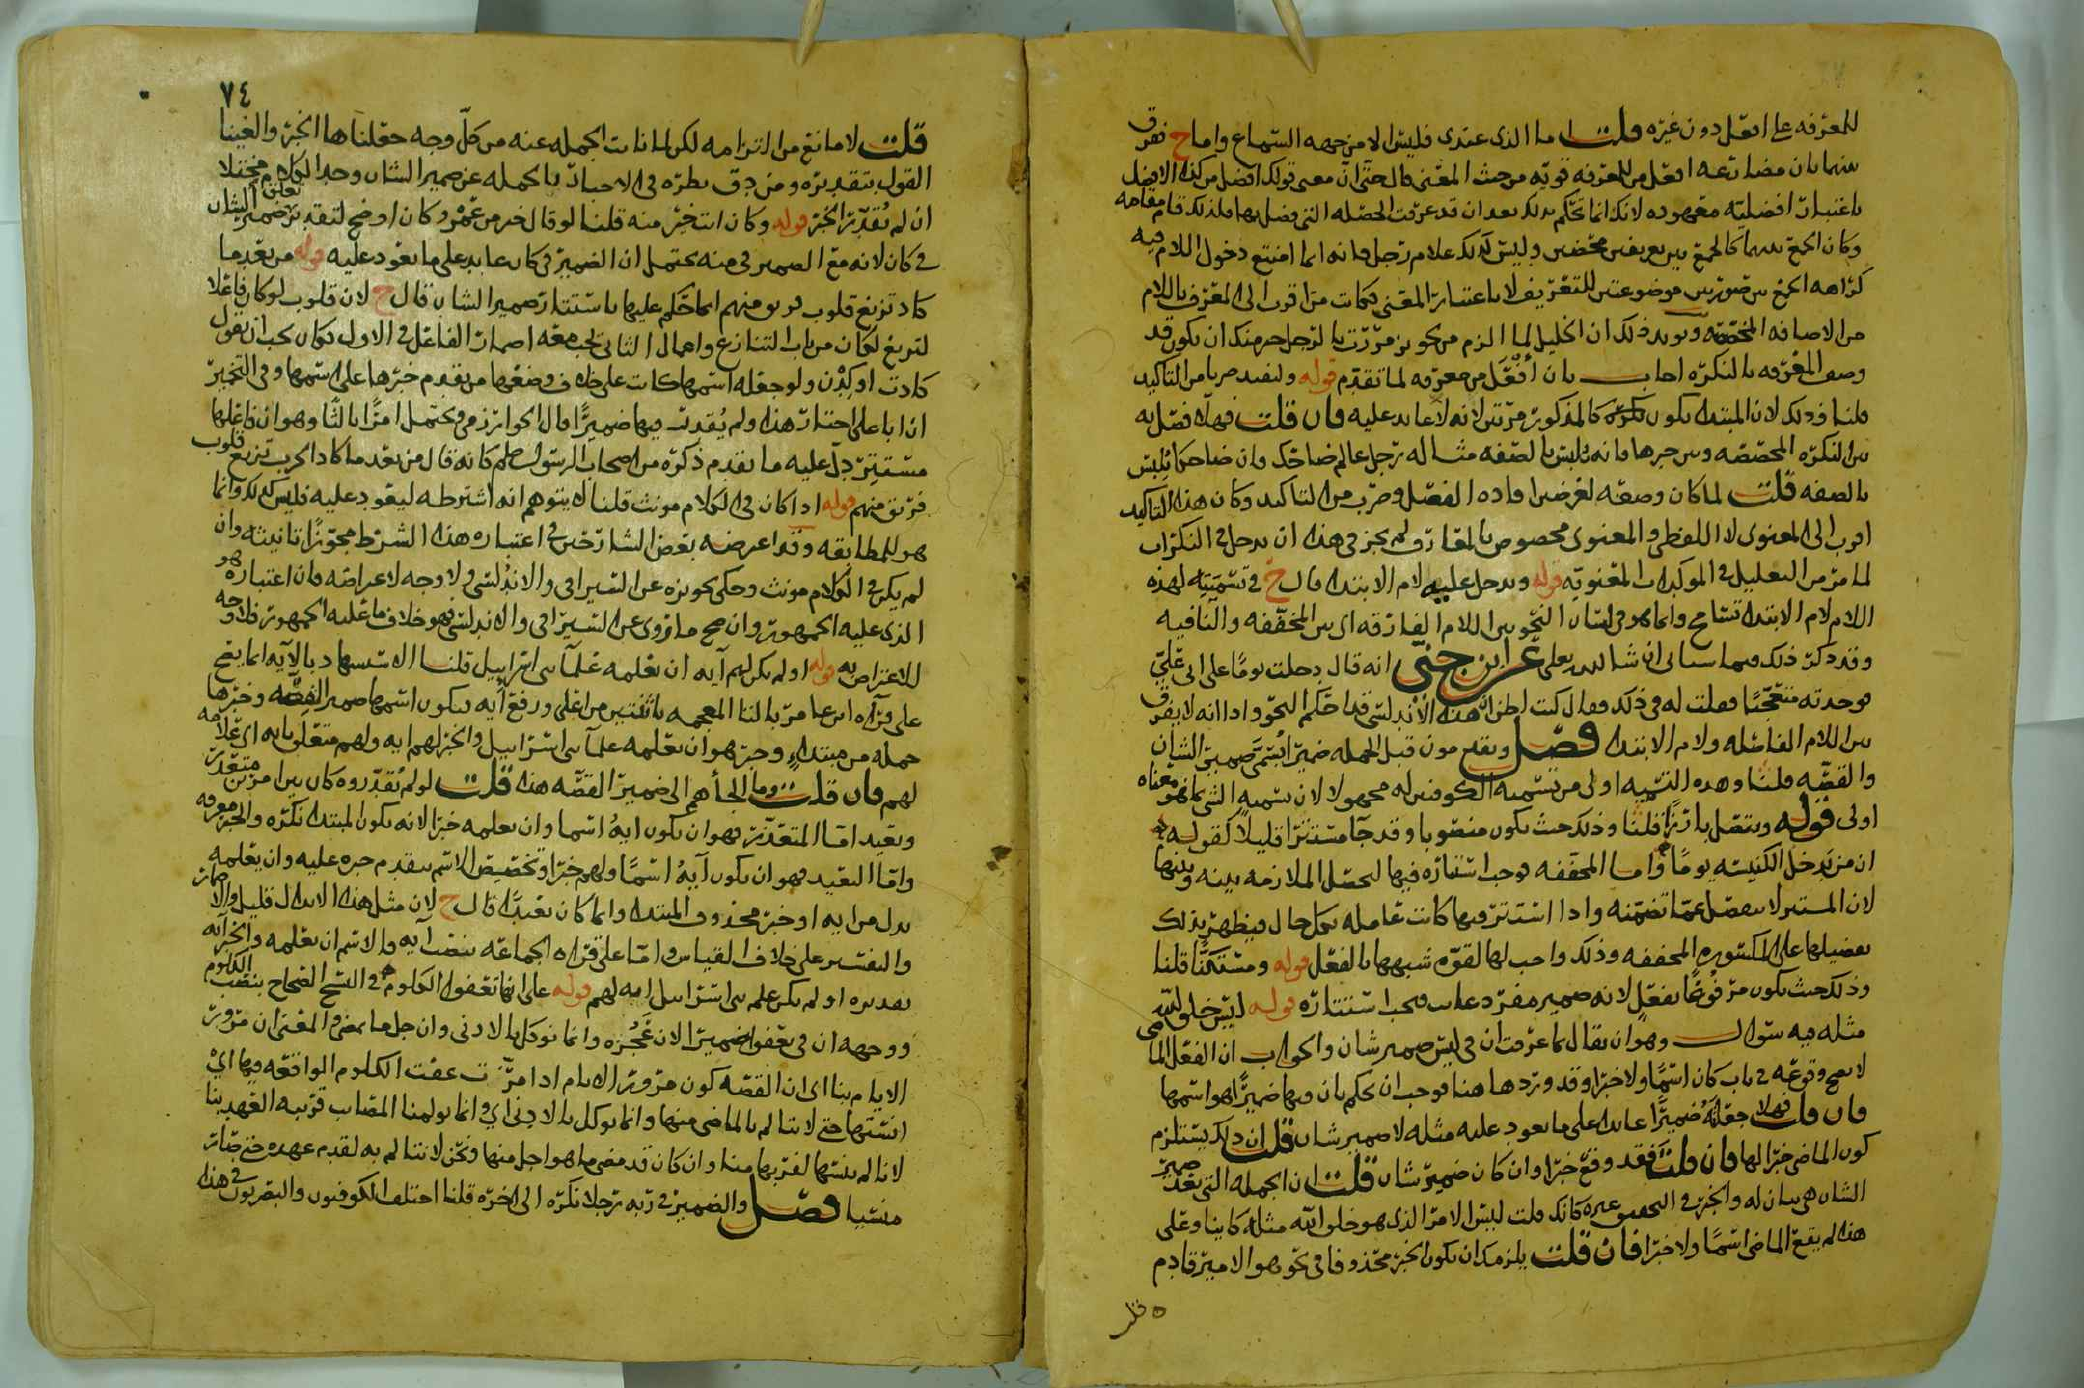 للمعرفه على افعل دون غيره قلت اما الذى عندى فليس الا من جهه السماع واما ح ففرق
بينهما بان مضارعه افعل من للمعرفه قويه من حيث المعنى قال حتى ان معنى قولك افضل من كذا الافضل
باعتبار افضليه معهوده لانك انما تحكم بذلك بعد ان قد عرفت الخصله التى فضل بها فلذلك قام مقامه
وكان الجمع بينهما كالجمع بين تعريفين محضين وليس كذلك غلام رجل فانه انما امتنع دخول اللام فيه
كراهه الجمع بين صورتين موضوعتين للتعريف لا باعتبار المعنى فكانت من اقرب الى المعرف باللام
من الاضافه المخصصه ويويد ذلك ان الخليل لما الزم من تجويز مررت بالرجل خير منك ان يكون قد
وصف المعرفه بالنكره اجاب بان أفعل من معرفه لما تقدم قوله وليفيد ضربا من التاكيد
قلنا وذلك لان المبتدا يكون كالمذكور مرتين لانه عايد عليه فان قلت فهلا فصل به
بين النكره المخصصه وبين خبرها فانه يلبس بالصفه مثاله رجل عالم ضاحك وان ضاحكا يلبس
بالصفه قلت لما كان وضعه لغرضين افاده الفصل وضرب من التاكيد وكان هذا التاكيد
اقرب الى المعنوى لا اللفظى والمعنوى مخصوص بالمعارف لم يجز فى هذا ان يدخل فى النكرات
لما مر من التعليل فى الموكدات المعنويه قوله ويدخل عليه لام الابتدا قال ح فى تسميته لهذه
اللام لام الابتدا تسامح وانما هو فى لسان النحويين اللام الفارقه اى بين المخففه والنافيه
وقد ذكر ذلك فيما سياتى ان شا الله تعلى عن ابن جنى انه قال دخلت يوما على ابى على
فوجدته متعجبا فقلت له فى ذلك فقال كنت اظن ان هذا الاندلسى قد احكم النحو واذا انه لا يفرق
بين اللام الفاصله ولام الابتدا فصل ويقدمون قبل الجمله ضميرا يسمى ضمير الشان
والقصه قلنا وهذه التسميه اولى من تسميه الكوفيين له مجهولا لان تسميه الشى بما هو معناه
اولى قوله ويتصل بارزا قلنا وذلك حيث يكون منصوبا وقد جا مستترا قليلا كقوله
ان من يدخل الكنيسه يوما واما المخففه فوجب استتاره فيها لتحصل الملازمه بينه وبينها
لان المستتر لا ينفصل عما تضمنه واذا استتر فيها كانت عامله بكل حال فيظهر بذلك
تفضيلها على المكسوره المخففه وذلك واجب لها لقوه شبهها بالفعل قوله ومستكنا قلنا
وذلك حيث يكون مرفوعا بفعل لانه ضمير مفرد غايب فيجب استتاره قوله ليس خلق الله
مثله فيه سوال وهو ان يقال بما عرفت ان فى ليس ضمير شان والجواب ان الفعل الماضى
لا يصح وقوعه فى باب كان اسما ولا خبرا وقد ورد هاهنا فوجب ان يحكم بان فيها ضميرا هو اسمها
فان قلت فهلا جعلته ضميرا عايدا على ما يعود عليه مثله لا ضمير شان قلت ان ذلك يستلزم
كون الماضى خبرا لها فان قلت فقد وقع خبرا وان كان ضمير شان قلت ان الجمله التى بعد ضمير
الشان هى بيان له والخبر فى التحقيق غيره كانك قلت ليس الامر الذى هو خلق الله مثله كاينا وعلى
هذا لم يقع الماضى اسما ولا خبرا فان قلت يلزمك ان يكون الخبر محذوفا فى نحو هو الامير قادم
قلت
٧٤
قلت لا مانع من التزامه لكن لما نابت الجمله عنه من كل وجه جعلناها الخبر والغينا
القول بتقديره ومن دق نظره فى الاخبار بالجمله عن ضمير الشان وجد الكلام مختلا
ان لم يقدر الخبر قوله وكان انت خير منه قلنا لو قال خير من عمرو كان اوضح لتقدير ضمير الشان
فى كان لانه مع الضمير فى منه يحتمل ان الضمير فى كان عايد على ما يعود عليه قوله من بعد ما
كاد تزيغ قلوب فريق منهم انما حكم عليها باستتار ضمير الشان قال ح لان قلوب لو كان فاعلا
لتزيغ لكان من باب التنازع واعمال الثانى يجب معه اضمار الفاعل فى الاول فكان يجب ان يقول
كادت او كدن ولو جعله اسمها كانت على خلاف وضعها من تقدم خبرها على اسمها وفى التخمير
ان ابا على اختار هذا ولم يقدر فيها ضميرا قال الخوارزمى ويحتمل امرا ثالثا وهو ان فاعلها
مستتر دل عليه ما تقدم ذكره من اصحاب الرسول صلعم كانه قال من بعد ما كاد الحرب تزيغ قلوب
فريق منهم قوله اذا كان فى الكلام مونث قلنا لا يتوهم انه اشترطه ليعود عليه فليس كذلك وانما
هو للمطابقه وقد اعرضه بعض الشارحين فى اعتباره هذا الشرط مجوزا تانيثه وان
لم يكن فى الكلام مونث وحكى تجويزه عن السيرافى والاندلسى ولا وجه لاعراضه فان اعتباره هو
الذى عليه الجمهور وان صح ما روى عن السيرافى والاندلسى فهو خلاف ما عليه الجمهور فلا وجه
للاعتراض به قوله او لم يكن لهم آيه ان يعلمه علما بنى اسراييل قلنا الاستشهاد بالآيه انما يصح
على قراه ابن عامر بالتا المعجمه باثنتين من اعلى ورفع آيه فيكون اسمها ضمير القصه وخبرها
جمله من مبتداء وخبر هو ان يعلمه علما بنى اسراييل والخبر لهم ايه ولهم متعلق بايه اى علامه
لهم فان قلت وما الجاهم الى ضمير القصه هذا قلت لو لم يقدروه كان بين امرين متعذر
وبعيد اما المتعذر فهو ان يكون ايه اسما وان يعلمه خبرا لانه يكون المبتدا نكره والخبر معرفه
واما البعيد فهو ان يكون آيه اسما ولهم خبرا وتخصيص الاسم بتقدم خبره عليه وان يعلمه
بدل من ايه او خبر محذوف المبتدا وانما كان بعيدا قال ح لان مثل هذا الابدال قليل والاضمار
والتفسير على خلاف القياس واما على قراه الجماعه بنصب آيه فالاسم ان يعلمه والخبر آيه
تقديره او لم يكن علم بنى اسراييل ايه لهم قوله على انها تعفو الكلوم فى النسخ الصحاح بنصب الكلوم
ووجهه ان فى تعفو ضميرا لان عجزه وانما نوكل بالادنى وان جل ما يمضى والمعنى ان مرور
الايام بنا اى ان القصه كون مرور الايام اذا مرت عفت الكلوم الواقعه فيها اى
انستها حتى لا نتالم بالماضى منها وانما نوكل بالادنى اى وانما يولمنا المصاب قريبه العهد بنا
لانا لم ننسها لقربها منا وان كان قد مضى ما هو اجل منها ونحن لا نتالم به لقدم عهده حتى صار
منسيا فصل والضمير فى ربه رجلا نكره الى اخره قلنا اختلف الكوفيون والبصريون فى هذا